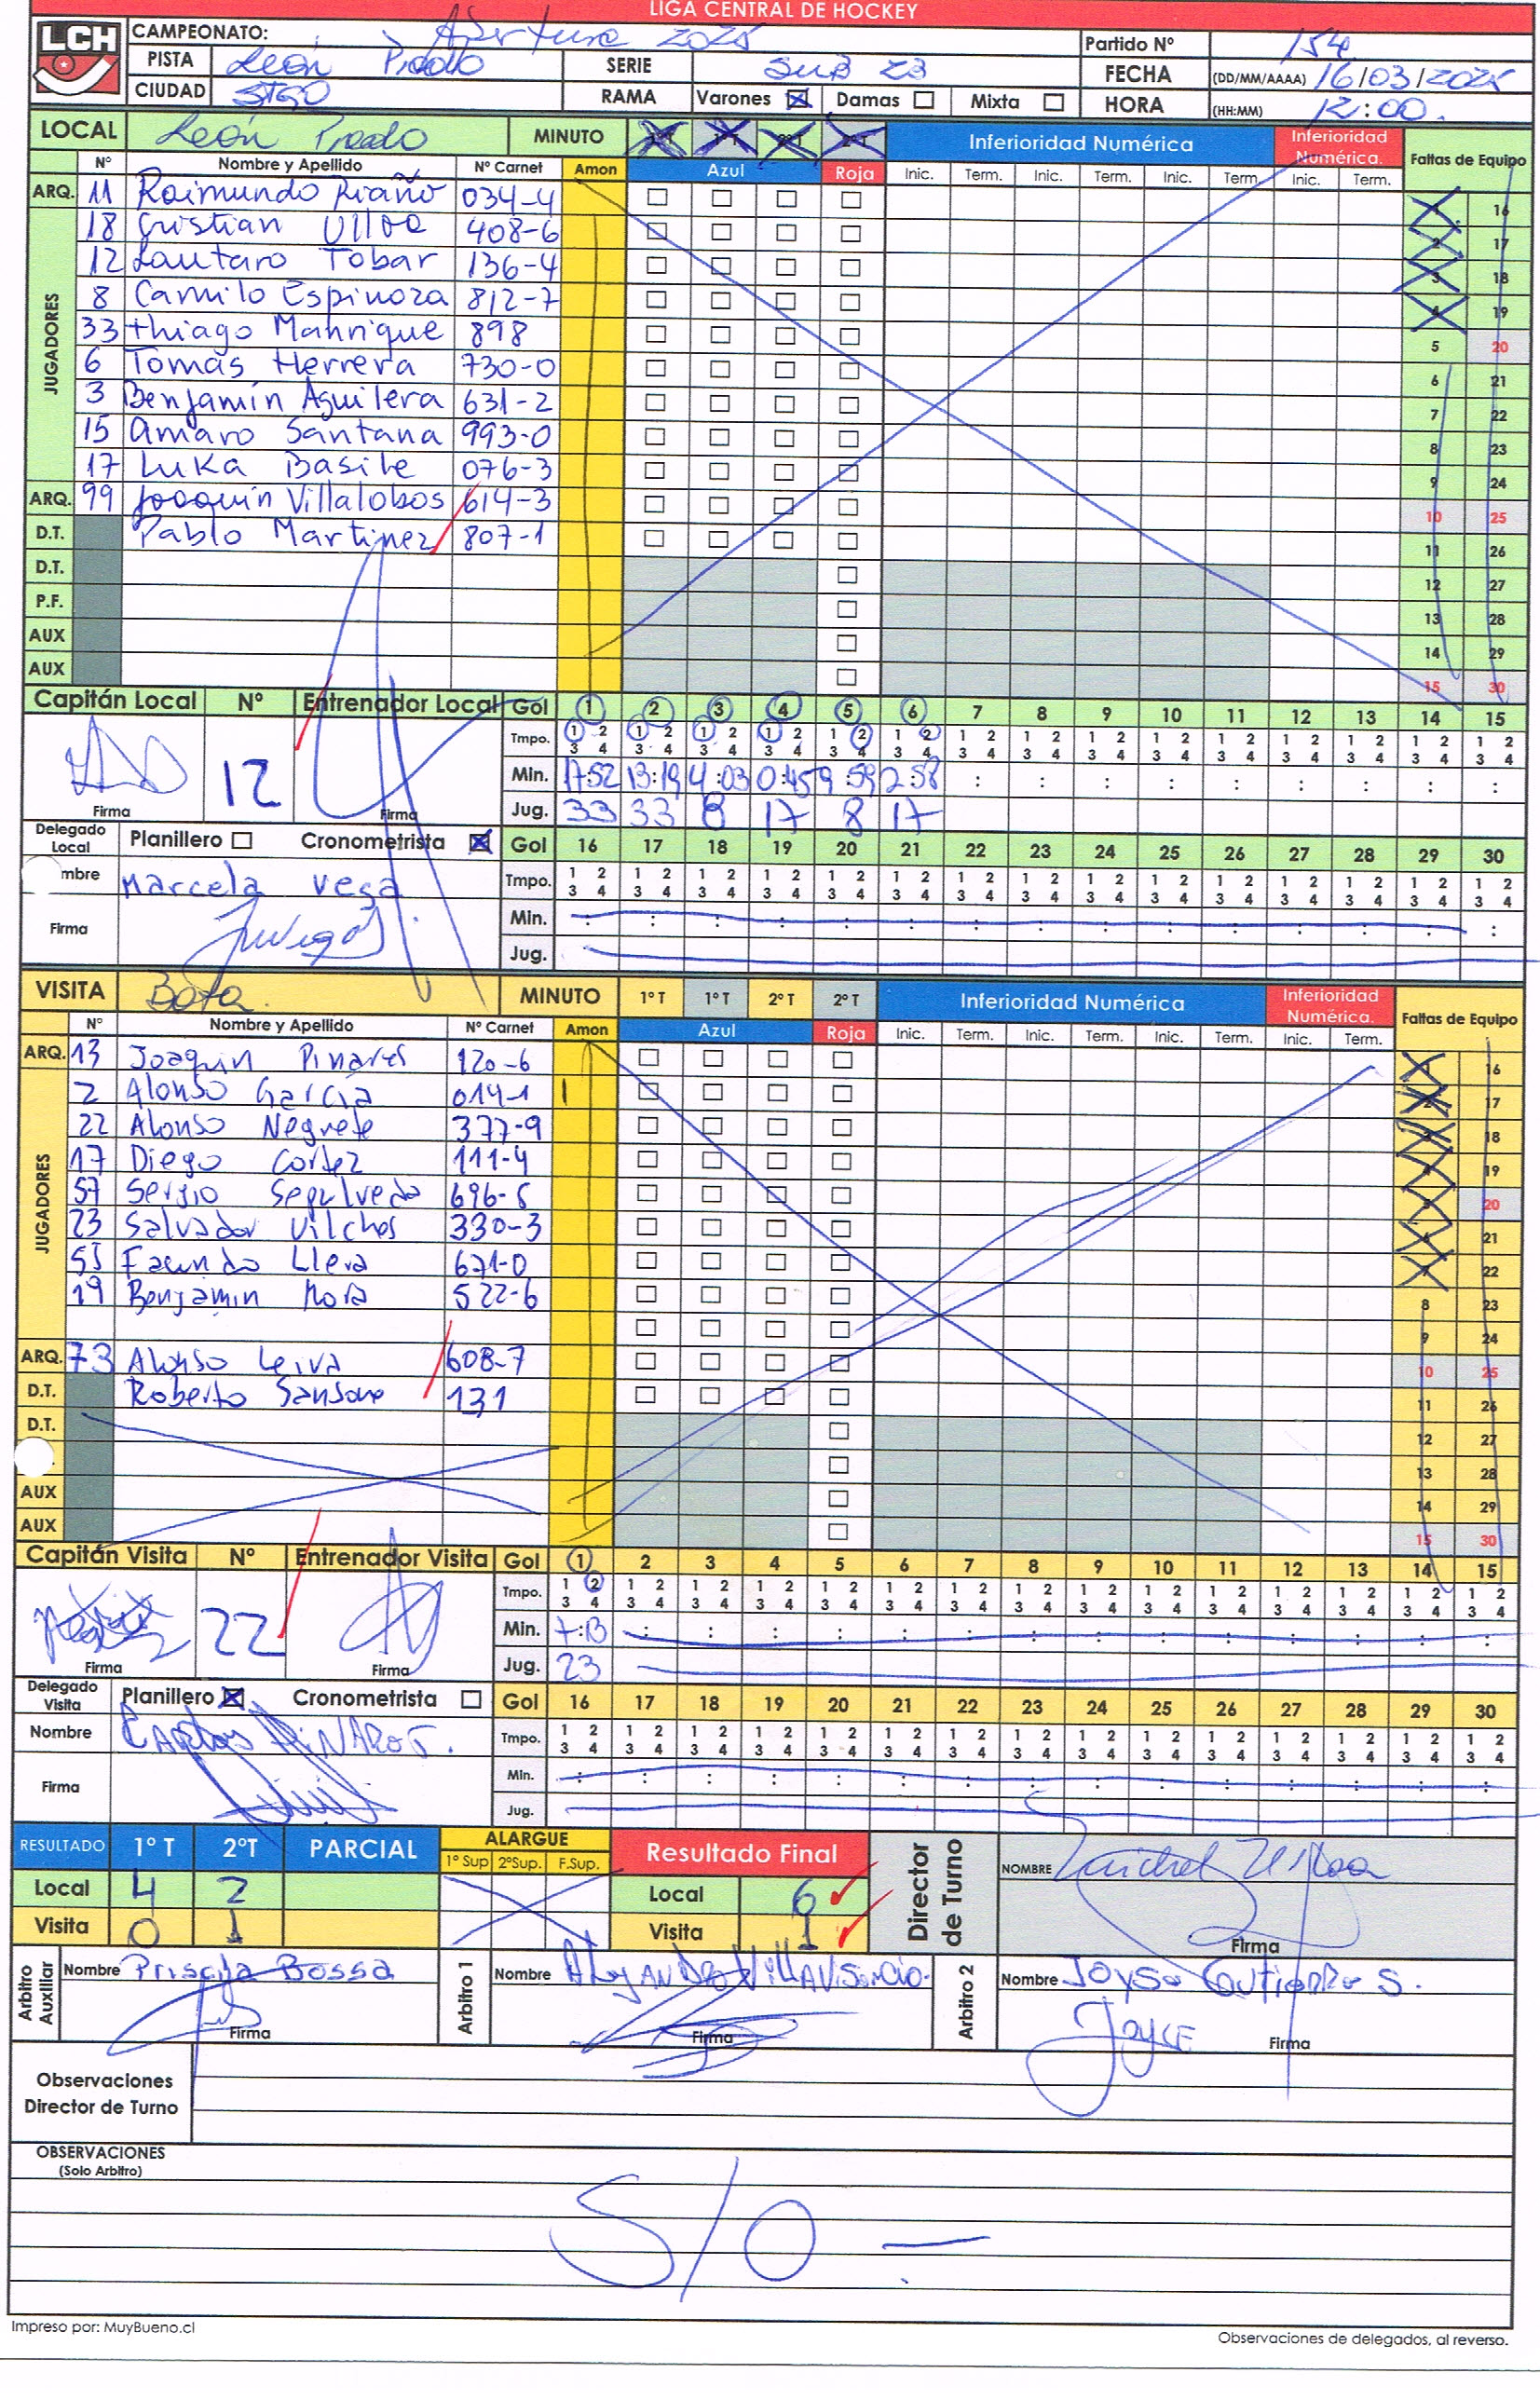 LIGA CENTRAL DE HOCKEY
LCH
CAMPEONATO: Apertura 2025
Partido Nº 154
PISTA León Prado SERIE SUB 23
FECHA (DD/MM/AAAA) 16/03/2025
CIUDAD STGO RAMA Varones Damas Mixta
HORA (HH:MM) 12:00.
LOCAL León Prado MINUTO 1º T 1º T 2º T 2º T Inferioridad Numérica Inferioridad Numérica. Faltas de Equipo
Nº Nombre y Apellido Nº Carnet Amon Azul Roja Inic. Term. Inic. Term. Inic. Term. Inic. Term.
ARQ. 11 Raimundo Riaño 034-4 1 16
JUGADORES
18 Cristian Ulloa 408-6 2 17
12 Lautaro Tobar 136-4 3 18
8 Camilo Espinoza 812-7 4 19
33 Thiago Manrique 898 5 20
6 Tomás Herrera 730-0 6 21
3 Benjamín Aguilera 631-2 7 22
15 Amaro Santana 993-0 8 23
17 Luka Basile 076-3 9 24
ARQ. 99 Joaquín Villalobos 614-3 10 25
D.T. Pablo Martinez 807-1 11 26
D.T. 12 27
P.F. 13 28
AUX 14 29
AUX 15 30
Capitán Local Nº Entrenador Local Gol 1 2 3 4 5 6 7 8 9 10 11 12 13 14 15
Tmpo. 1 2 1 2 1 2 1 2 1 2 1 2 1 2 1 2 1 2 1 2 1 2 1 2 1 2 1 2 1 2
3 4 3 4 3 4 3 4 3 4 3 4 3 4 3 4 3 4 3 4 3 4 3 4 3 4 3 4 3 4
12 Min. 17:52 13:19 4:03 0:45 9:59 2:58 : : : : : : : : :
Firma Firma Jug. 33 33 8 17 8 17
Delegado Local Planillero Cronometrista Gol 16 17 18 19 20 21 22 23 24 25 26 27 28 29 30
mbre Marcela Vega Tmpo. 1 2 1 2 1 2 1 2 1 2 1 2 1 2 1 2 1 2 1 2 1 2 1 2 1 2 1 2 1 2
3 4 3 4 3 4 3 4 3 4 3 4 3 4 3 4 3 4 3 4 3 4 3 4 3 4 3 4 3 4
Firma Min. : : : : : : : : : : : : : : :
Jug.
VISITA Bata. MINUTO 1º T 1º T 2º T 2º T Inferioridad Numérica Inferioridad Numérica. Faltas de Equipo
Nº Nombre y Apellido Nº Carnet Amon Azul Roja Inic. Term. Inic. Term. Inic. Term. Inic. Term.
ARQ. 13 Joaquin Pinares 120-6 1 16
JUGADORES
2 Alonso García 014-1 | 2 17
22 Alonso Negrete 377-9 3 18
17 Diego Cortez 111-4 4 19
57 Sergio Sepúlveda 696-5 5 20
23 Salvador Vilches 330-3 6 21
55 Facundo Lleva 671-0 7 22
19 Benjamin Mora 522-6 8 23
9 24
ARQ. 73 Alonso Leiva 608-7 10 25
D.T. Roberto Sansone 131 11 26
D.T. 12 27
13 28
AUX 14 29
AUX 15 30
Capitán Visita Nº Entrenador Visita Gol 1 2 3 4 5 6 7 8 9 10 11 12 13 14 15
Tmpo. 1 2 1 2 1 2 1 2 1 2 1 2 1 2 1 2 1 2 1 2 1 2 1 2 1 2 1 2 1 2
3 4 3 4 3 4 3 4 3 4 3 4 3 4 3 4 3 4 3 4 3 4 3 4 3 4 3 4 3 4
22 Min. 7:13 : : : : : : : : : : : : : :
Firma Firma Jug. 23
Delegado Visita Planillero Cronometrista Gol 16 17 18 19 20 21 22 23 24 25 26 27 28 29 30
Nombre Carlos Pinares T. Tmpo. 1 2 1 2 1 2 1 2 1 2 1 2 1 2 1 2 1 2 1 2 1 2 1 2 1 2 1 2 1 2
3 4 3 4 3 4 3 4 3 4 3 4 3 4 3 4 3 4 3 4 3 4 3 4 3 4 3 4 3 4
Firma Min. : : : : : : : : : : : : : : :
Jug.
RESULTADO 1º T 2ºT PARCIAL ALARGUE 1º Sup 2ºSup. F.Sup. Resultado Final Director de Turno NOMBRE
Local 4 2 Local 6
Visita 0 1 Visita 1 Firma
Arbitro Auxiliar Nombre Priscila Bossa Arbitro 1 Nombre Alejandro Villavisencio. Arbitro 2 Nombre Joyse Gutierrez S.
Firma Firma Joyce Firma
Observaciones
Director de Turno
OBSERVACIONES
(Solo Arbitro)
S/O —
Impreso por: MuyBueno.cl
Observaciones de delegados, al reverso.